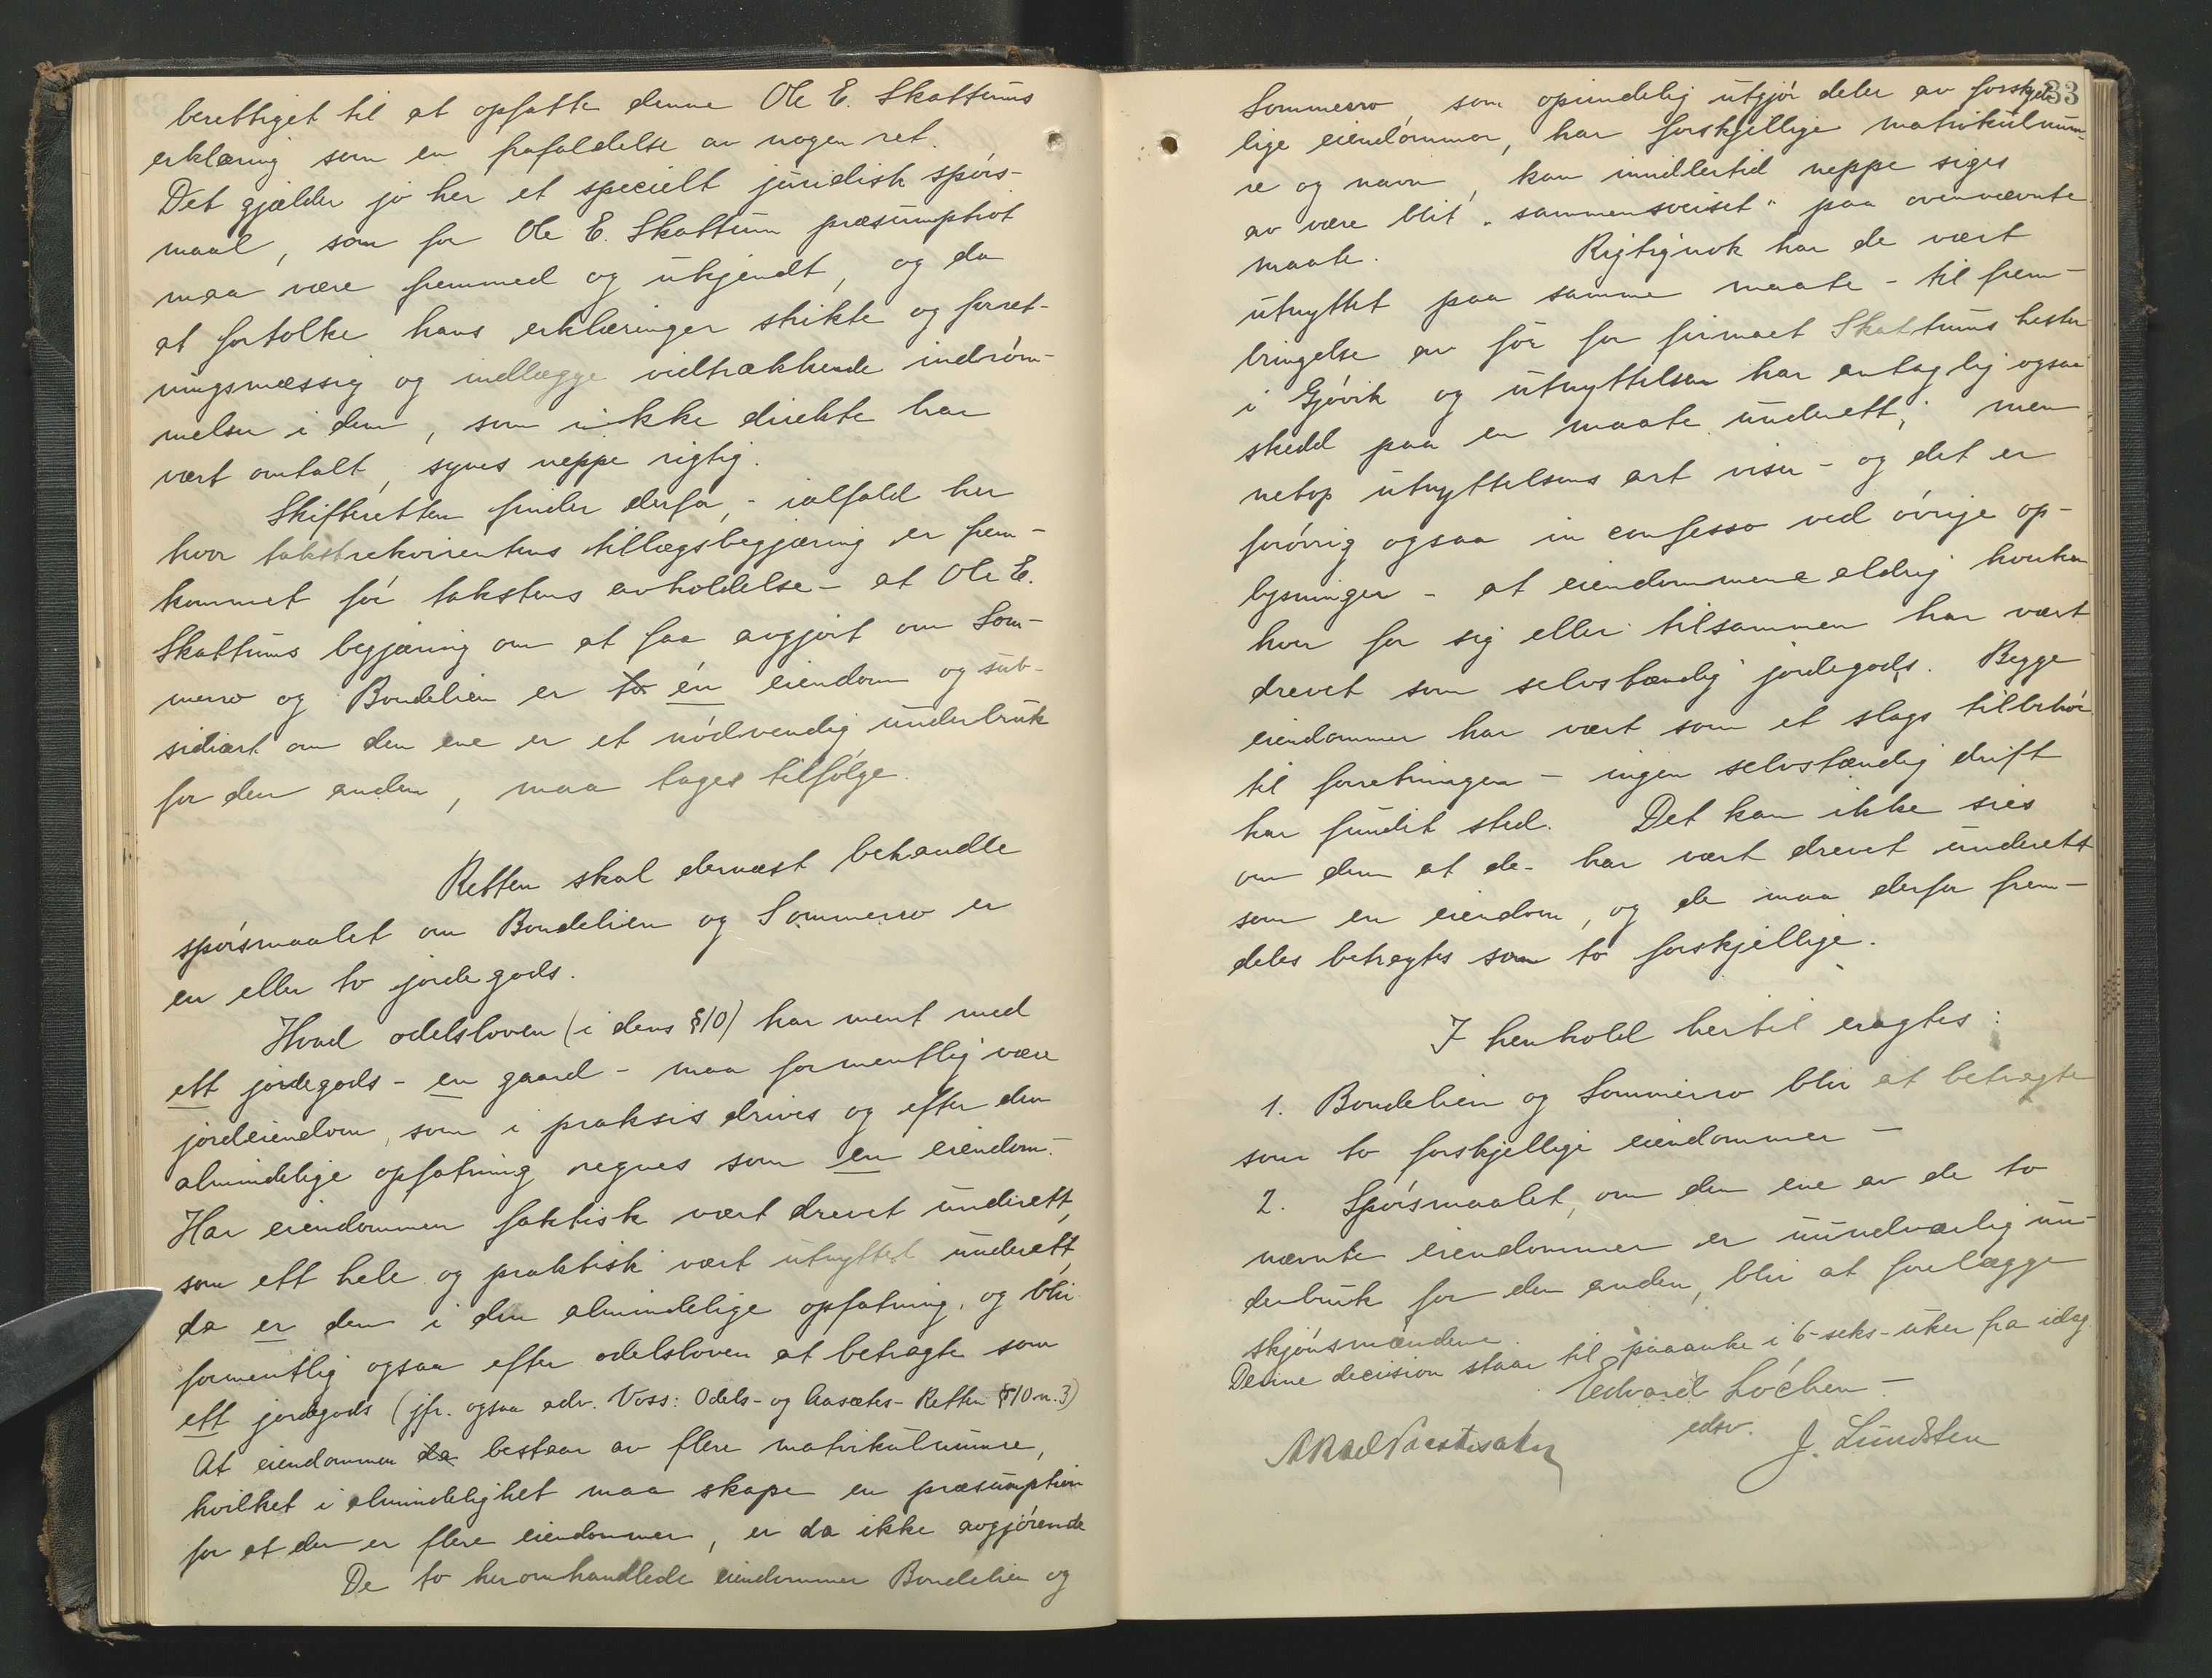 berettiget til at opfatte denne Ole E. Skattums
erklæring som en frafaldelse av nogen ret.
Det gjælder jo her et specielt juridisk spørs-
maal, som for Ole E. Skattum præsumptivt
maa være fremmed og ukjendt, og da
at fortolke hans erklæringer strikte og forret-
ningsmæssig og indlægge vidtrækkende indrøm-
melser i dem, som ikke direkte har
vært omtalt, synes neppe rigtig.
Skifteretten finder derfor, - ialfald her
hvor takstrekvirentens tillægsbegjæring er frem-
kommet før takstens avholdelse - at Ole E.
Skattums begjæring om at faa avgjort om Som-
merro og Bondelien er to én eiendom og sub-
sidiært om den ene er et nødvendig underbruk
for den anden, maa tages tilfølge.
Retten skal dernæst behandle
spørsmaalet om Bondelien og Sommerro er
en eller to jordegods.
Hvad odelsloven (i dens §10) har ment med
ett jordegods - en gaard - maa formentlig være
jordeiendom, som i praksis drives og efter den
almindelige opfatning regnes som en eiendom.-
Har eiendommen faktisk vært drevet underett,
som ett hele og praktisk vært utnyttet underett,
da er den i den almindelige opfatning, og blir
formentlig ogsaa efter odelsloven at betragte som
ett jordegods (jfr. ogsaa adv. Voss: Odels- og Aasætes-Retten §10 n. 3)
At eiendommen da bestaar av flere matrikulnumre,
hvilket i almindelighet maa skape en præsumption
for at der er flere eiendommer, er da ikke avgjørende
De to her omhandlede eiendommer Bondelien og
33
Sommerro som oprindelig utgjør deler av forskjel-
lige eiendommer, har forskjellige matrikulnum-
re og navn, kan imidlertid neppe siges
av være blit "sammensveiset" paa ovennævnte
maate. Rigtignok har de vært
utnyttet paa samme maate - til frem-
bringelse av for for firmaet Skattums hester
i Gjøvik og utnyttelsen har antaglig ogsaa
skedd paa en maate underett; men
netop utnyttelsens art viser - og det er
forøvrig ogsaa in confesso ved øvrige op-
lysninger - at eiendommene aldrig hverken
hver for sig eller tilsammen har vært
drevet som selvstændig jordegods. Begge
eiendommer har vært som et slags tilbehør
til forretningen - ingen selvstændig drift
har fundet sted. Det kan ikke sies
om dem at de har vært drevet underett
som en eiendom, og de maa derfor frem-
deles betragtes som to forskjellige.
I henhold hertil eragtes:
1. Bondelien og Sommerro blir at betragte
som to forskjellige eiendommer -
2. Spørsmaalet, om den ene av de to
nævnte eiendommer er uundværlig un-
derbruk for den anden, blir at forelægge
skjønsmændene.
Denne decision staar til paaanke i 6-seks-uker fra idag.
Edvard Løchen -
edsv.
J. Lundsten